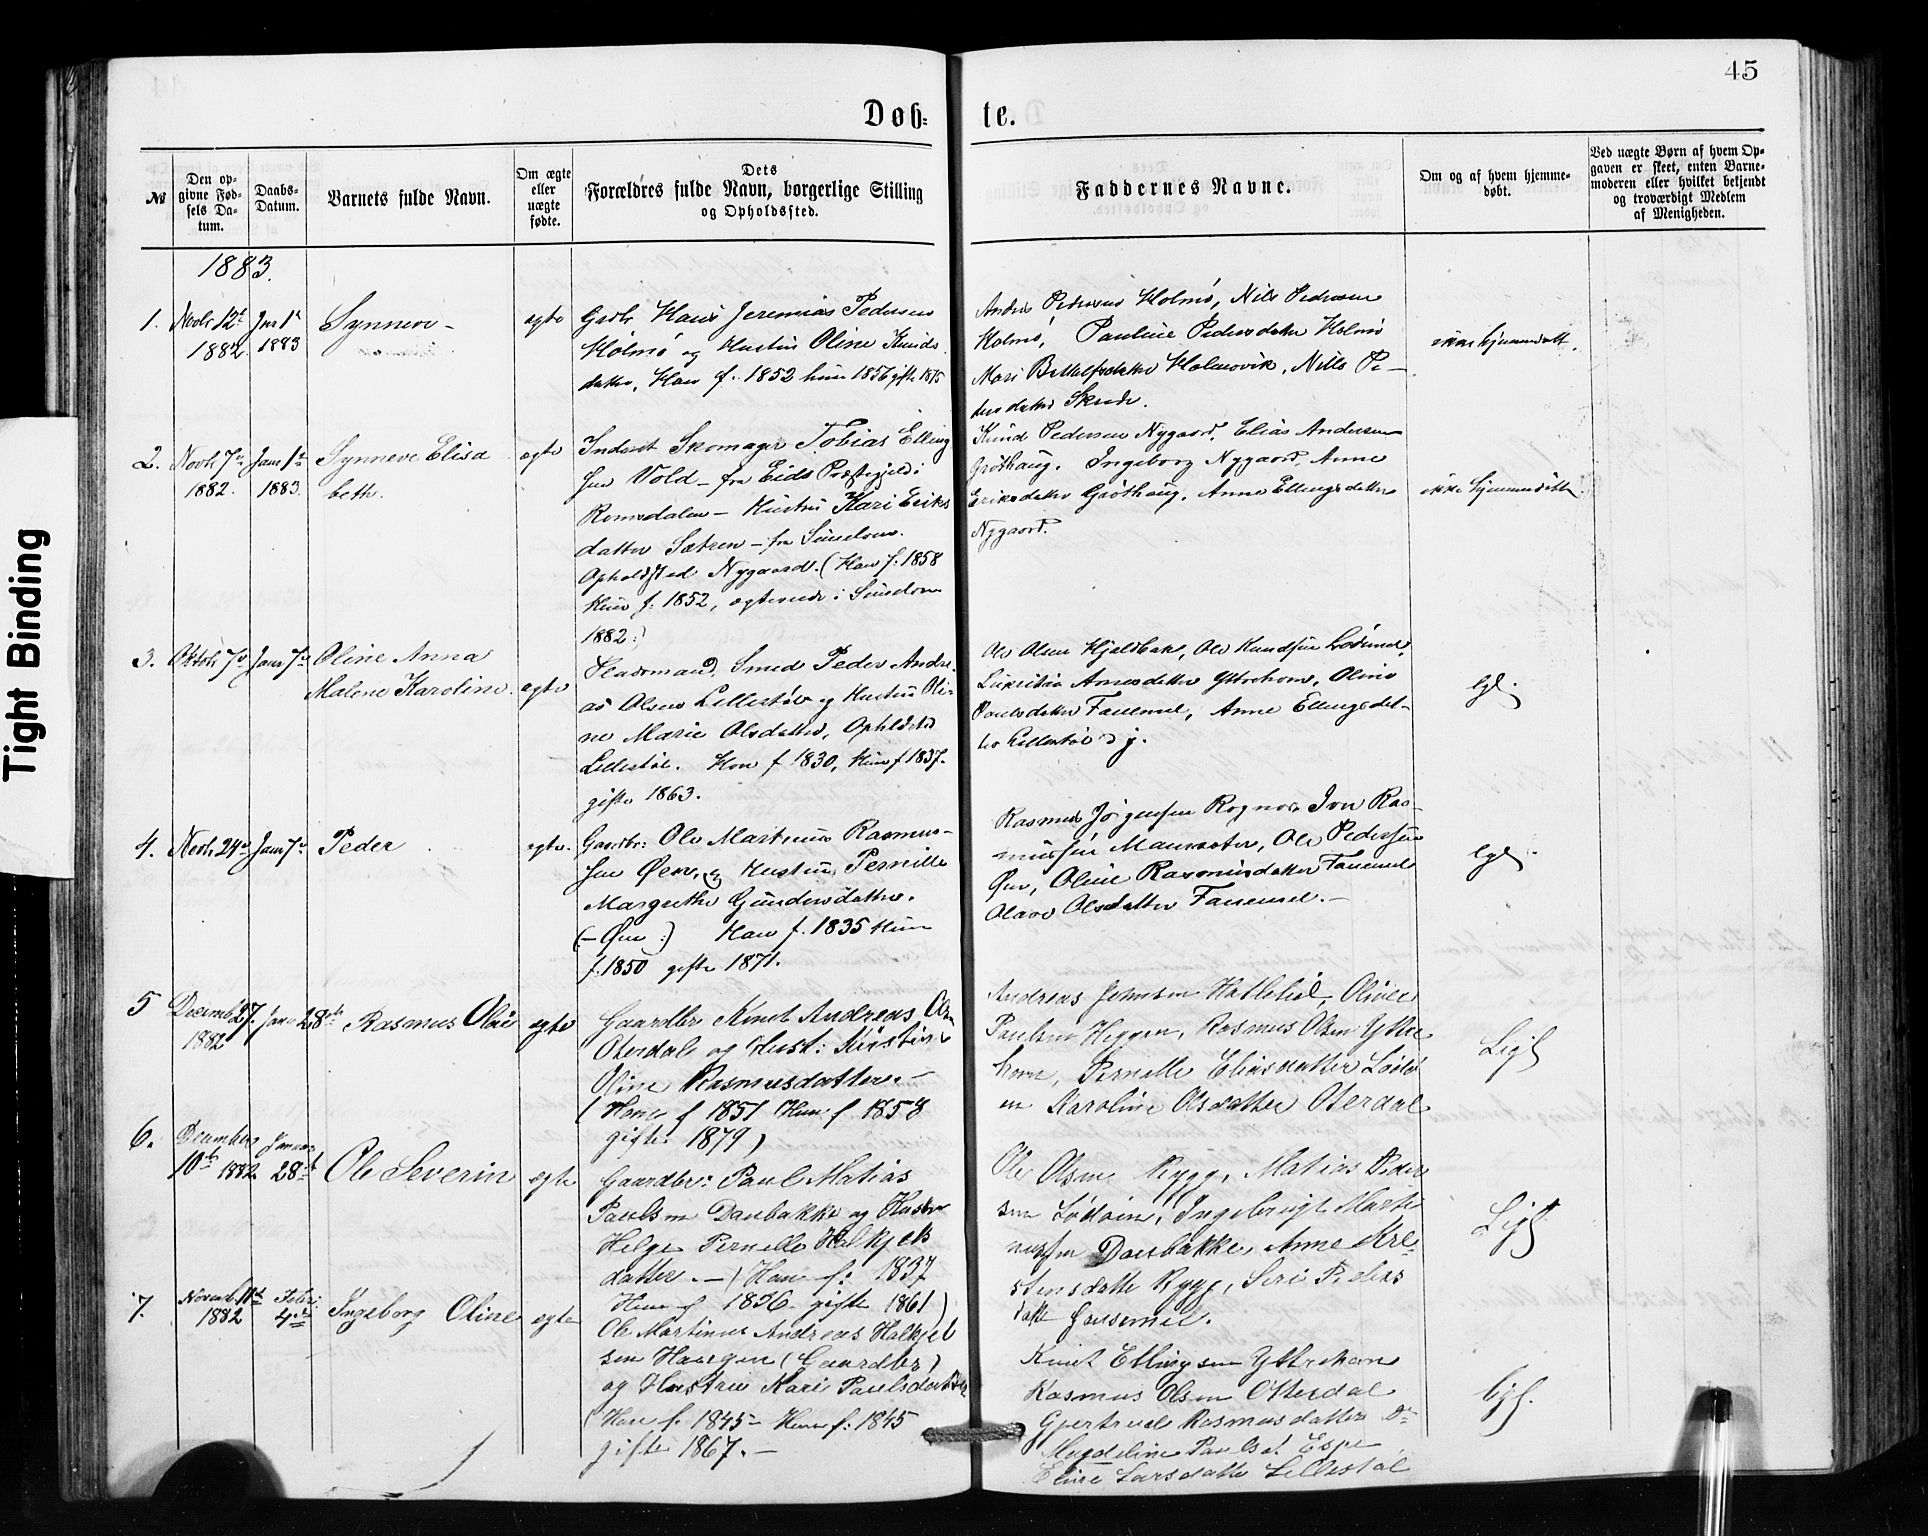 45
Døb-
te.
№
Den op-
givne Fød-
sels Da-
tum.
Daabs-
Datum.
Barnets fulde Navn.
Om ægte
eller
uægte
fødte.
Dets
Forældres fulde Navn, borgerlige Stilling
og Opholdssted.
Faddernes Navne.
Om og af hvem hjemme-
døbt.
Ved uægte Børn af hvem Op-
gaven er skeet, enten Barne-
moderen eller hvilket bekjendt
og troværdigt Medlem
af Menigheden.
1883.
1.
Novbr 12te
1882
Jnr 1st
1883
Synneve
egte
Grdbr Hans Jeremias Pedersen
Holmø og Hustru Oline Knuds
datter, Han f. 1852 hun 1856 gifte 1875
Anders Pedersen Holmø, Nils Pedersen
Holmø, Pauline Pedersdatter Holmø
Mari Holmevik, Nills Pe-
dersdatter Skrede.
ikke hjemmedøbt.
2.
Novbr 7de
1882.
Janr 1st
1883.
Synneve Elisa
beth.
egte
Inderst Skomager Tobias Elling
sen Vold - fra Eids Præstegjeld i
Romsdalen - Hustru Kari Eriks
datter Sætren - fra
Opholdssted Nygaard. (Han f. 1858
Hun f. 1852, egteviede i
1882:)
Knud Pedersen Nygaard, Elias Andersen
Grøthaug, Ingeborg Nygaard, Anne
Eriksdatter Grøthaug, Anne Ellingsdatter
Nygaard.
ikke hjemmedøbt
3.
Oktobr 7de
Janr 7de
Oline Anna
Malene Karoline.
egte
Pladsmand, Smed Peder Andre-
as Olsen Lillestøl og Hustru Oli-
ne Marie Olsdatter, Opholdsted
Lillestøl. Han f 1830, Hun f 1837.
gifte 1863.
Ole Olsen Hjeldbak, Ole Knudsen Lødøen,
Arnesdatter Yttrehorn, Oline
Paulsdatter Fauemel, Anne Ellingsdat-
ter Lillestøl d y.
lgl.
4.
Novbr 24de
Janr 7de
Peder
egte.
Gaardbr: Ole Martinus Rasmus-
sen Øen, og Hustru Pernille
Margrethe Gundersdatter.
(- Øen :) Han f. 1835 Hun
f. 1850 gifte 1871.
Rasmus Jørgensen Rognes, Ivar Ras-
mussen Maurseter, Ole Pedersen
Øen, Oline Rasmusdatter Fauemel
Olave Olsdatter Fauemel. -
lgl.
5
Decemb 27.
1882
Janr 28de
Rasmus Olai
egte
Gaardbr Knut Andreas Ols
Oterdal og Hust: Kirstine
Oline Rasmusdatter. -
(Han f 1851 Hun f 1858
gifte 1879)
Andreas Johnsen Hatlelid, Oliver
Paulsen Heggen, Rasmus Olsen Yttre
horn, Pernille Eliasdatter Lødø
en Karoline Olsdatter Oterdal
Ligl
6.
December
10de 1882
Januar
28de
Ole Severin
egte
Gaardbr: Paul Matias
Paulsen Daubakke og Hustru
Helge Pernille Halkjels
datter. -) Han f: 1837
Hun f 1836 gifte 1861)
Ole Olsen Rygg, Matias Peder
sen Lødøen, Ingebrigt Marti
nussen Daubakke, Anne Kre
stensdatte Rygg, Siri Peders
datte Fauemel.
Ligl
7.
Novemb 11te
1882
Febr:
4de
Ingeborg Oline
egte
Ole Martinus Andreas Halkjel
sen Haugen (Gaardbr)
og Hustru Kari Paulsdatter
(Han f. 1845 - Hun f: 1845
gifte 1867. -
Knut Ellingsen Yttrehorn
Rasmus Olsen Otterdal
Gjertrud Rasmusdatter Do
Magdeline Paulsd. Espe
Eline Larsdatte Lillestøl
ligl.
Tight Binding